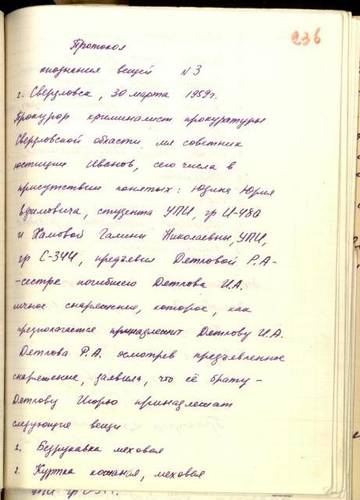 236
Протокол
опознания вещей №3
г. Свердловск, 30 марта 1959г.
Прокурор криминалист прокуратуры
Свердловской области мл советник
юстиции Иванов, сего числа в
присутствии понятых: Юдина Юрия
Ефимовича, студента УПИ, гр И-480
и Хамовой Галины Николаевны, УПИ,
гр С-344, предъявил Дятловой Р.А-
-сестре погибшего Дятлова И.А.
личное снаряжение, которое, как
предполагается принадлежит Дятлову И.А.
Дятлова Р.А. осмотрев предъявленное
снаряжение, заявила, что её брату-
Дятлову Игорю принадлежат
следующие вещи
1. Безрукавка меховая
2. Куртка кожаная, меховая